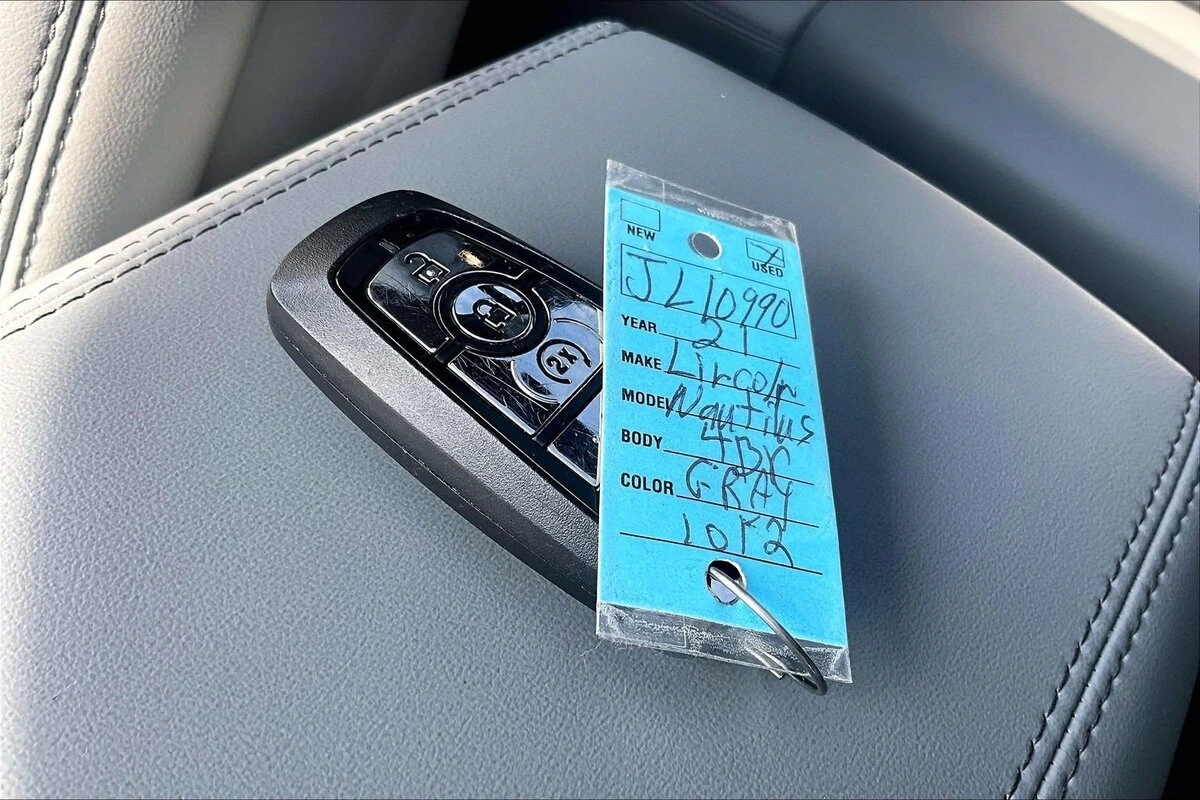 NEW
USED
JL10990
YEAR 21
MAKE Lincoln
MODEL Nautilus
BODY 4DR
COLOR GRAY
1 OF 2
2x